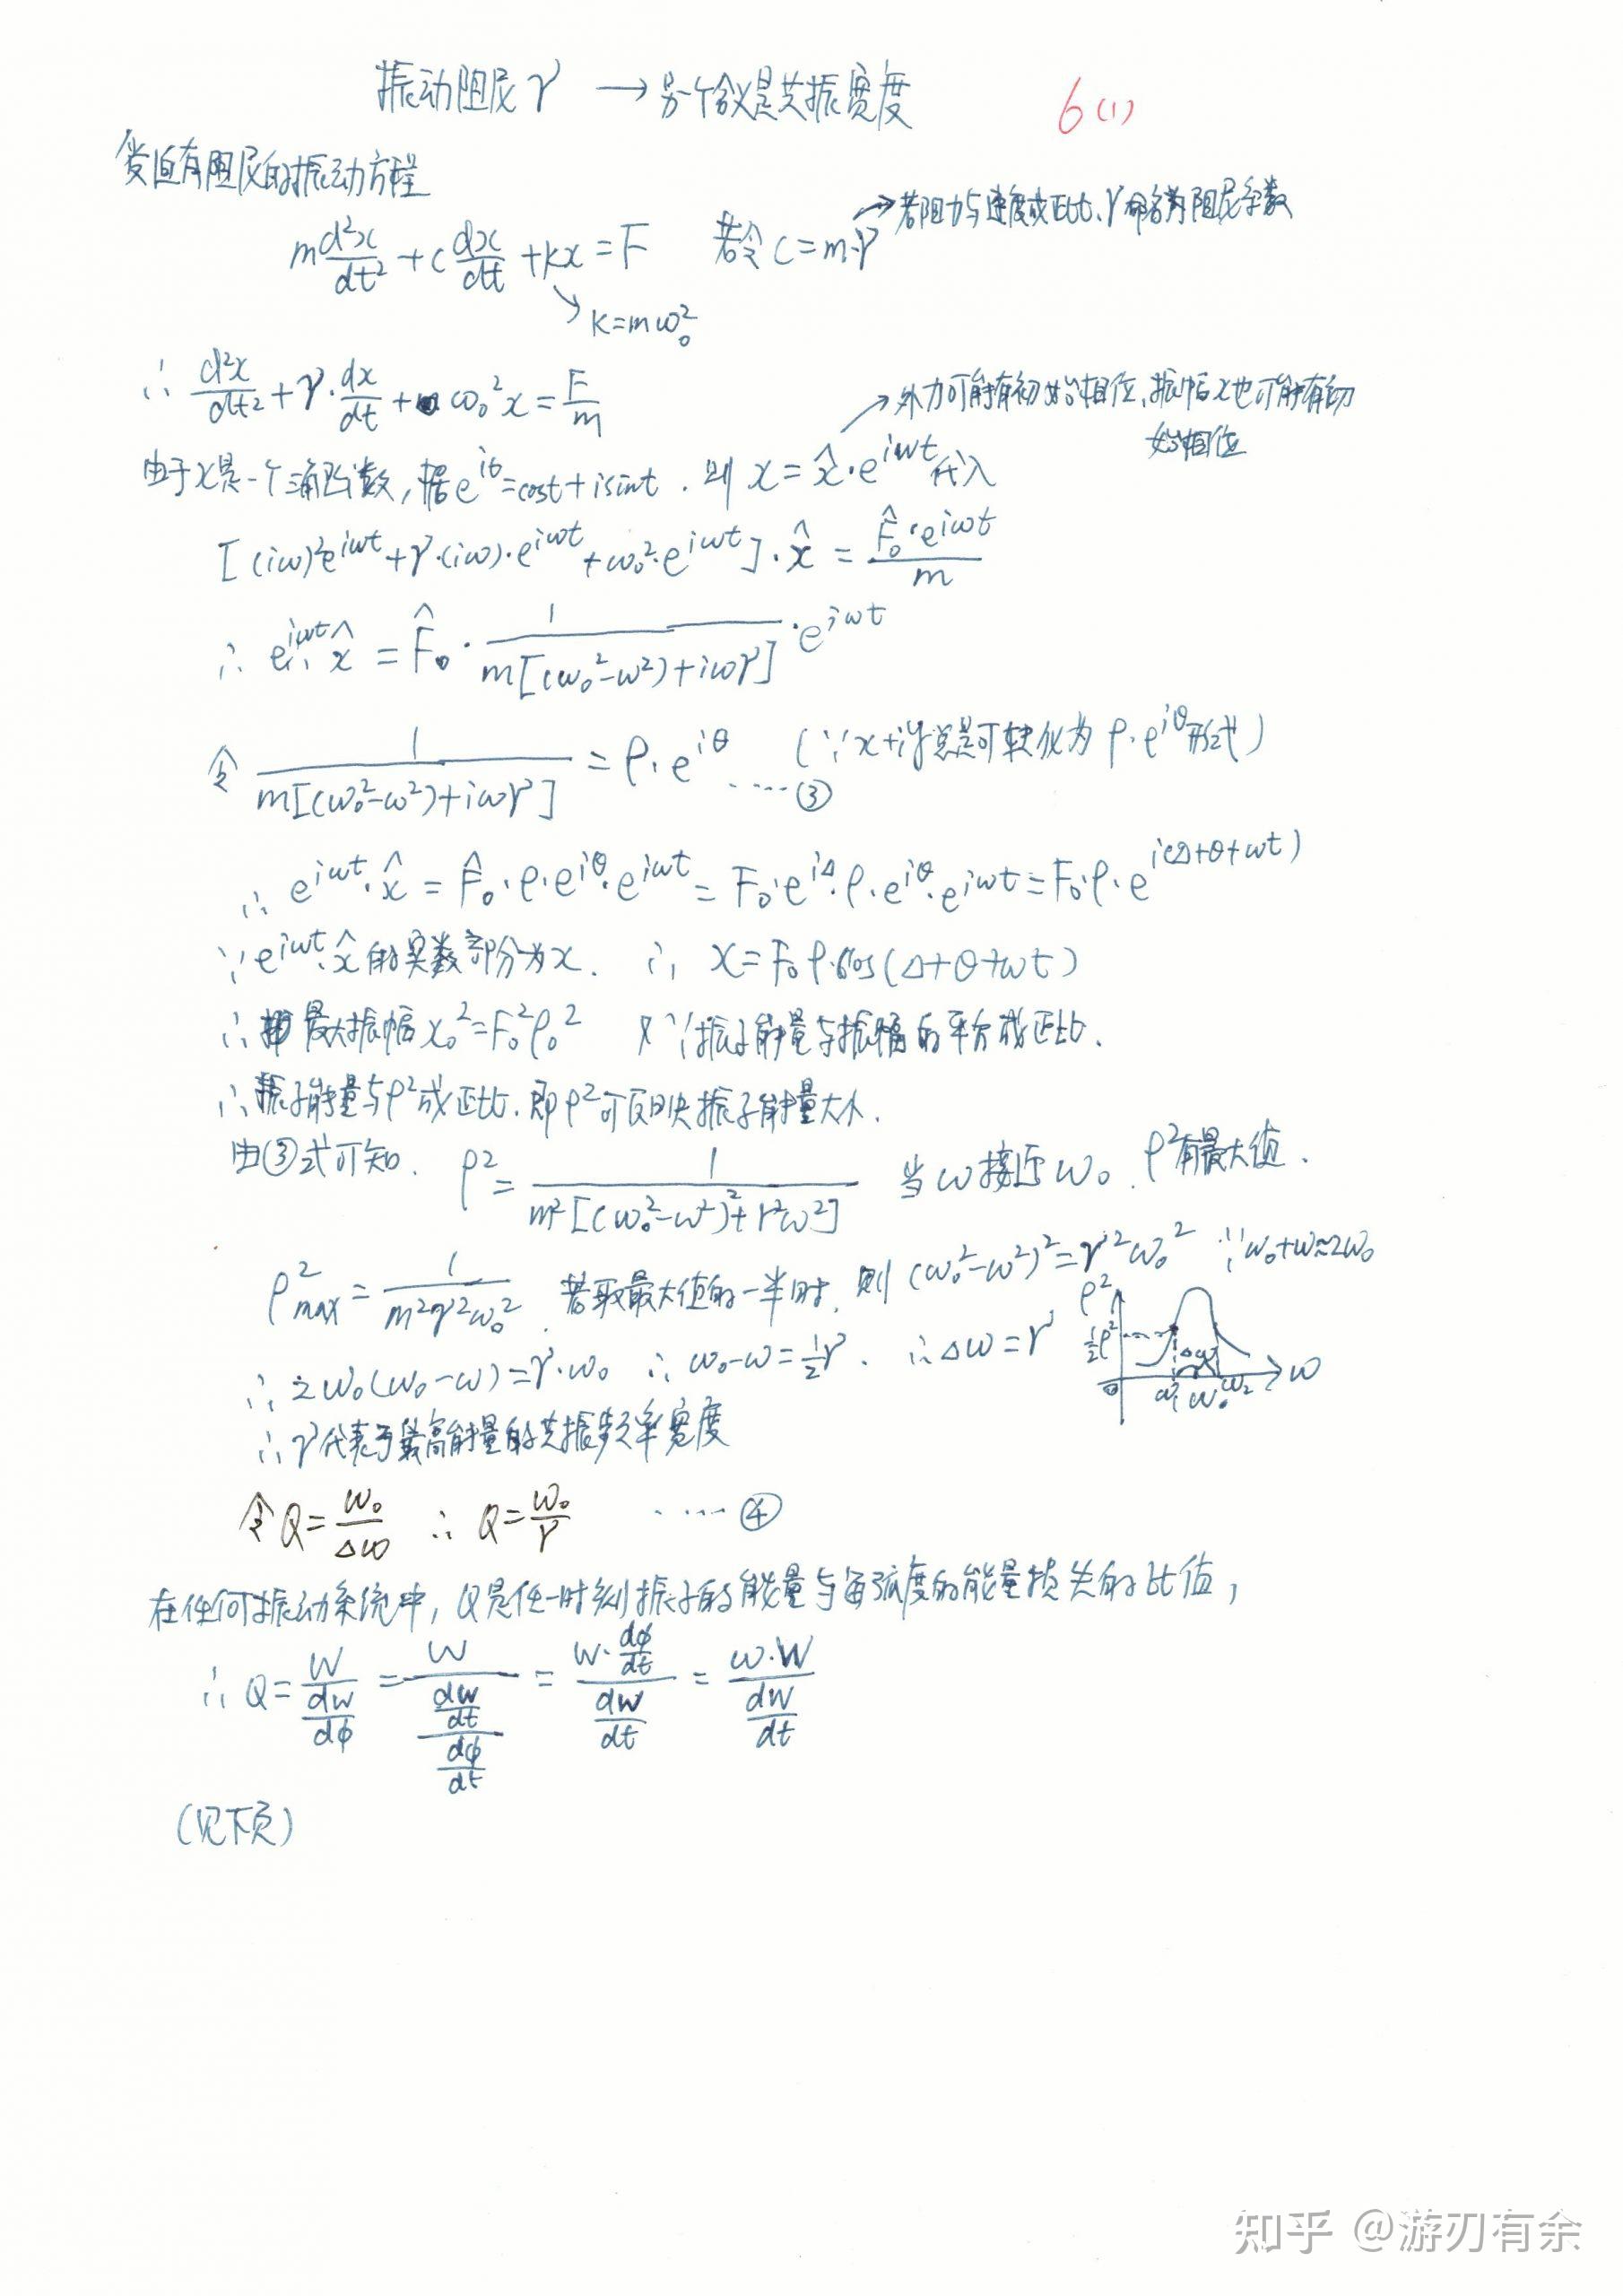 振动阻尼γ → 另个含义是共振宽度
6(1)
受迫有阻尼的振动方程
→若阻力与速度成正比、γ命名为阻尼系数
m d²x/dt² + c dx/dt + kx = F 若令 c = m·γ
↘ k = mω₀²
∴ d²x/dt² + γ·dx/dt + ω₀²x = F/m
→外力可能有初始相位、振幅x也可能有初
始相位
由于x是一个三角函数, 据 e^{it} = cost + isint . 则 x = x̂·e^{iωt} 代入
[(iω)²e^{iωt} + γ·(iω)·e^{iωt} + ω₀²·e^{iωt}]·x̂ = F̂₀·e^{iωt}/m
∴ e^{iωt}·x̂ = F̂₀· 1/m[(ω₀²-ω²)+iωγ] ·e^{iωt}
令 1/m[(ω₀²-ω²)+iωγ] = ρ·e^{iθ} ……③ (∵x+iy总是可转化为 ρ·e^{iθ}形式)
∴ e^{iωt}·x̂ = F̂₀·ρ·e^{iθ}·e^{iωt} = F₀·e^{iΔ}·ρ·e^{iθ}·e^{iωt} = F₀·ρ·e^{i(Δ+θ+ωt)}
∵ e^{iωt}·x̂ 的实数部分为x. ∴ x = F₀ρ·cos(Δ+θ+ωt)
∴ 最大振幅 x₀² = F₀²ρ₀² 又∵振子能量与振幅的平方成正比.
∴ 振子能量与ρ²成正比. 即ρ²可反映振子能量大小.
由③式可知. ρ² = 1/m²[(ω₀²-ω²)²+γ²ω²] 当ω接近ω₀. ρ²有最大值.
ρ²max = 1/m²γ²ω₀² . 若取最大值的一半时, 则 (ω₀²-ω²)² = γ²ω₀² ∵ω₀+ω≈2ω₀
∴ 2ω₀(ω₀-ω) = γ·ω₀ ∴ ω₀-ω = ½γ. ∴ Δω = γ
ρ²
½ρ²
Δω
0 ω₁ ω₀ ω₂ ω
∴ γ代表了最高能量的共振频率宽度
令 Q = ω₀/Δω ∴ Q = ω₀/γ ……④
在任何振动系统中, Q是任一时刻振子的能量与每弧度的能量损失的比值,
∴ Q = W/(dW/dφ) = W/((dW/dt)/(dφ/dt)) = (W·dφ/dt)/(dW/dt) = ω·W/(dW/dt)
(见下页)
知乎 @游刃有余